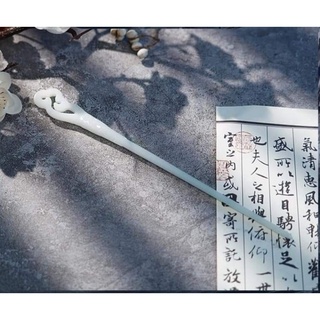 氣清惠風和暢仰觀
盛所以遊目騁懷足以
也夫人之相與俯仰一世
室之內或因寄所託放